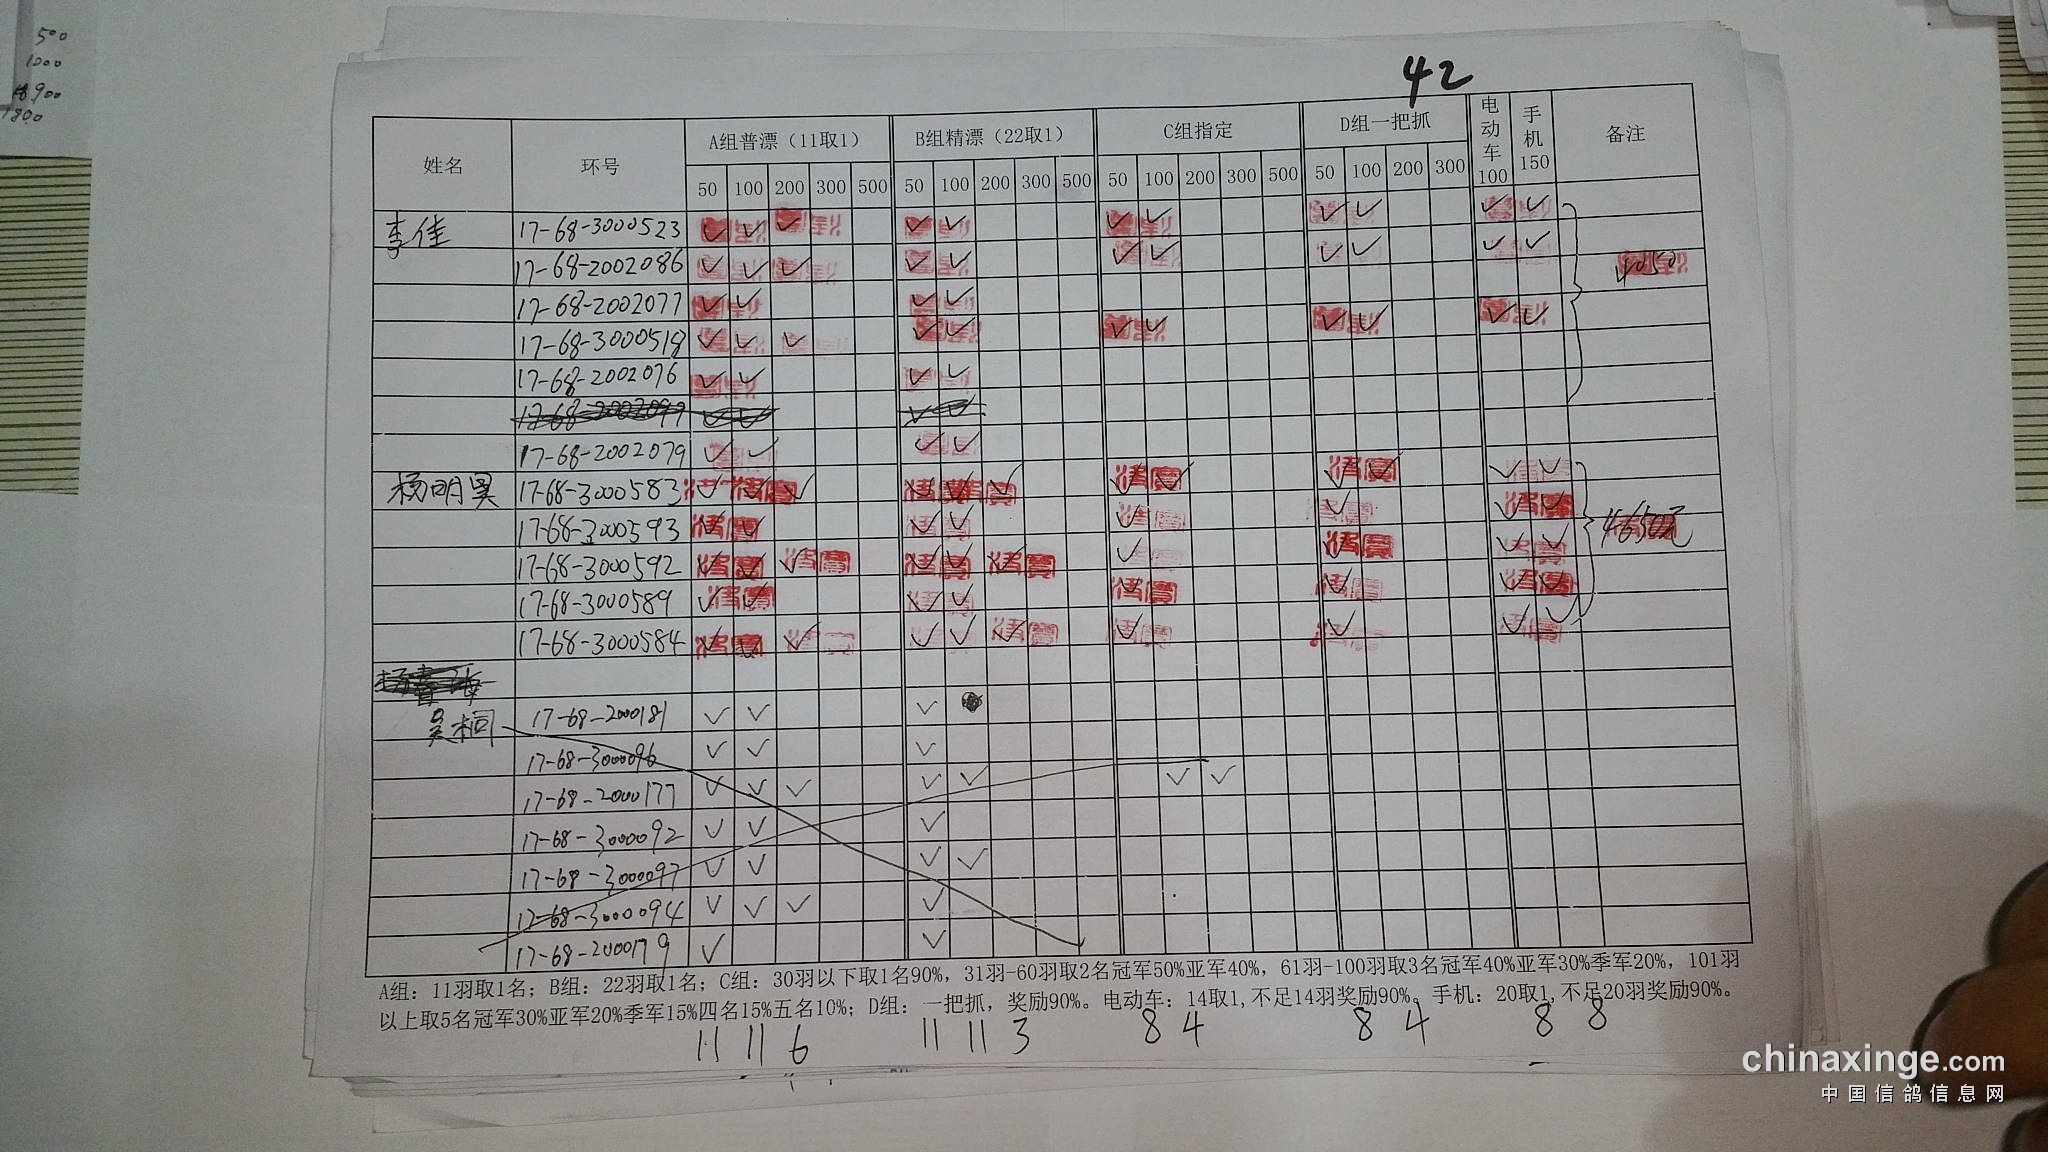 500
1000
18900
1800
42
姓名 环号 A组普漂（11取1） B组精漂（22取1） C组指定 D组一把抓 电动车100 手机150 备注
50 100 200 300 500 50 100 200 300 500 50 100 200 300 500 50 100 200 300
李佳 17-68-3000523 ✓ ✓ ✓ ✓ ✓ ✓ ✓ ✓ ✓ ✓ ✓
17-68-2002086 ✓ ✓ ✓ ✓ ✓ ✓ ✓ ✓ ✓ ✓ ✓ 4050
17-68-2002077 ✓ ✓ ✓ ✓
17-68-3000518 ✓ ✓ ✓ ✓ ✓ ✓ ✓ ✓ ✓ ✓ ✓
17-68-2002076 ✓ ✓ ✓ ✓
17-68-2002079 ✓ ✓ ✓ ✓
杨明昊 17-68-3000583 ✓ ✓ ✓ ✓ ✓ ✓ ✓ ✓ ✓ ✓ ✓ ✓
17-68-3000593 ✓ ✓ ✓ ✓ ✓ ✓ ✓ ✓ 4650元
17-68-3000592 ✓ ✓ ✓ ✓ ✓ ✓ ✓ ✓ ✓ ✓
17-68-3000589 ✓ ✓ ✓ ✓ ✓ ✓ ✓ ✓
17-68-3000584 ✓ ✓ ✓ ✓ ✓ ✓ ✓ ✓ ✓ ✓
吴桐 17-68-2000181 ✓ ✓ ✓
17-68-3000096 ✓ ✓ ✓
17-68-2000177 ✓ ✓ ✓ ✓ ✓ ✓ ✓
17-68-3000092 ✓ ✓ ✓
17-68-3000097 ✓ ✓ ✓ ✓
17-68-3000094 ✓ ✓ ✓ ✓
17-68-2000179 ✓ ✓
A组：11羽取1名；B组：22羽取1名；C组：30羽以下取1名90%，31羽-60羽取2名冠军50%亚军40%，61羽-100羽取3名冠军40%亚军30%季军20%，101羽
以上取5名冠军30%亚军20%季军15%四名15%五名10%；D组：一把抓，奖励90%。电动车：14取1,不足14羽奖励90%。手机：20取1,不足20羽奖励90%。
11 11 6 11 11 3 8 4 8 4 8 8
chinaxinge.com
中国信鸽信息网